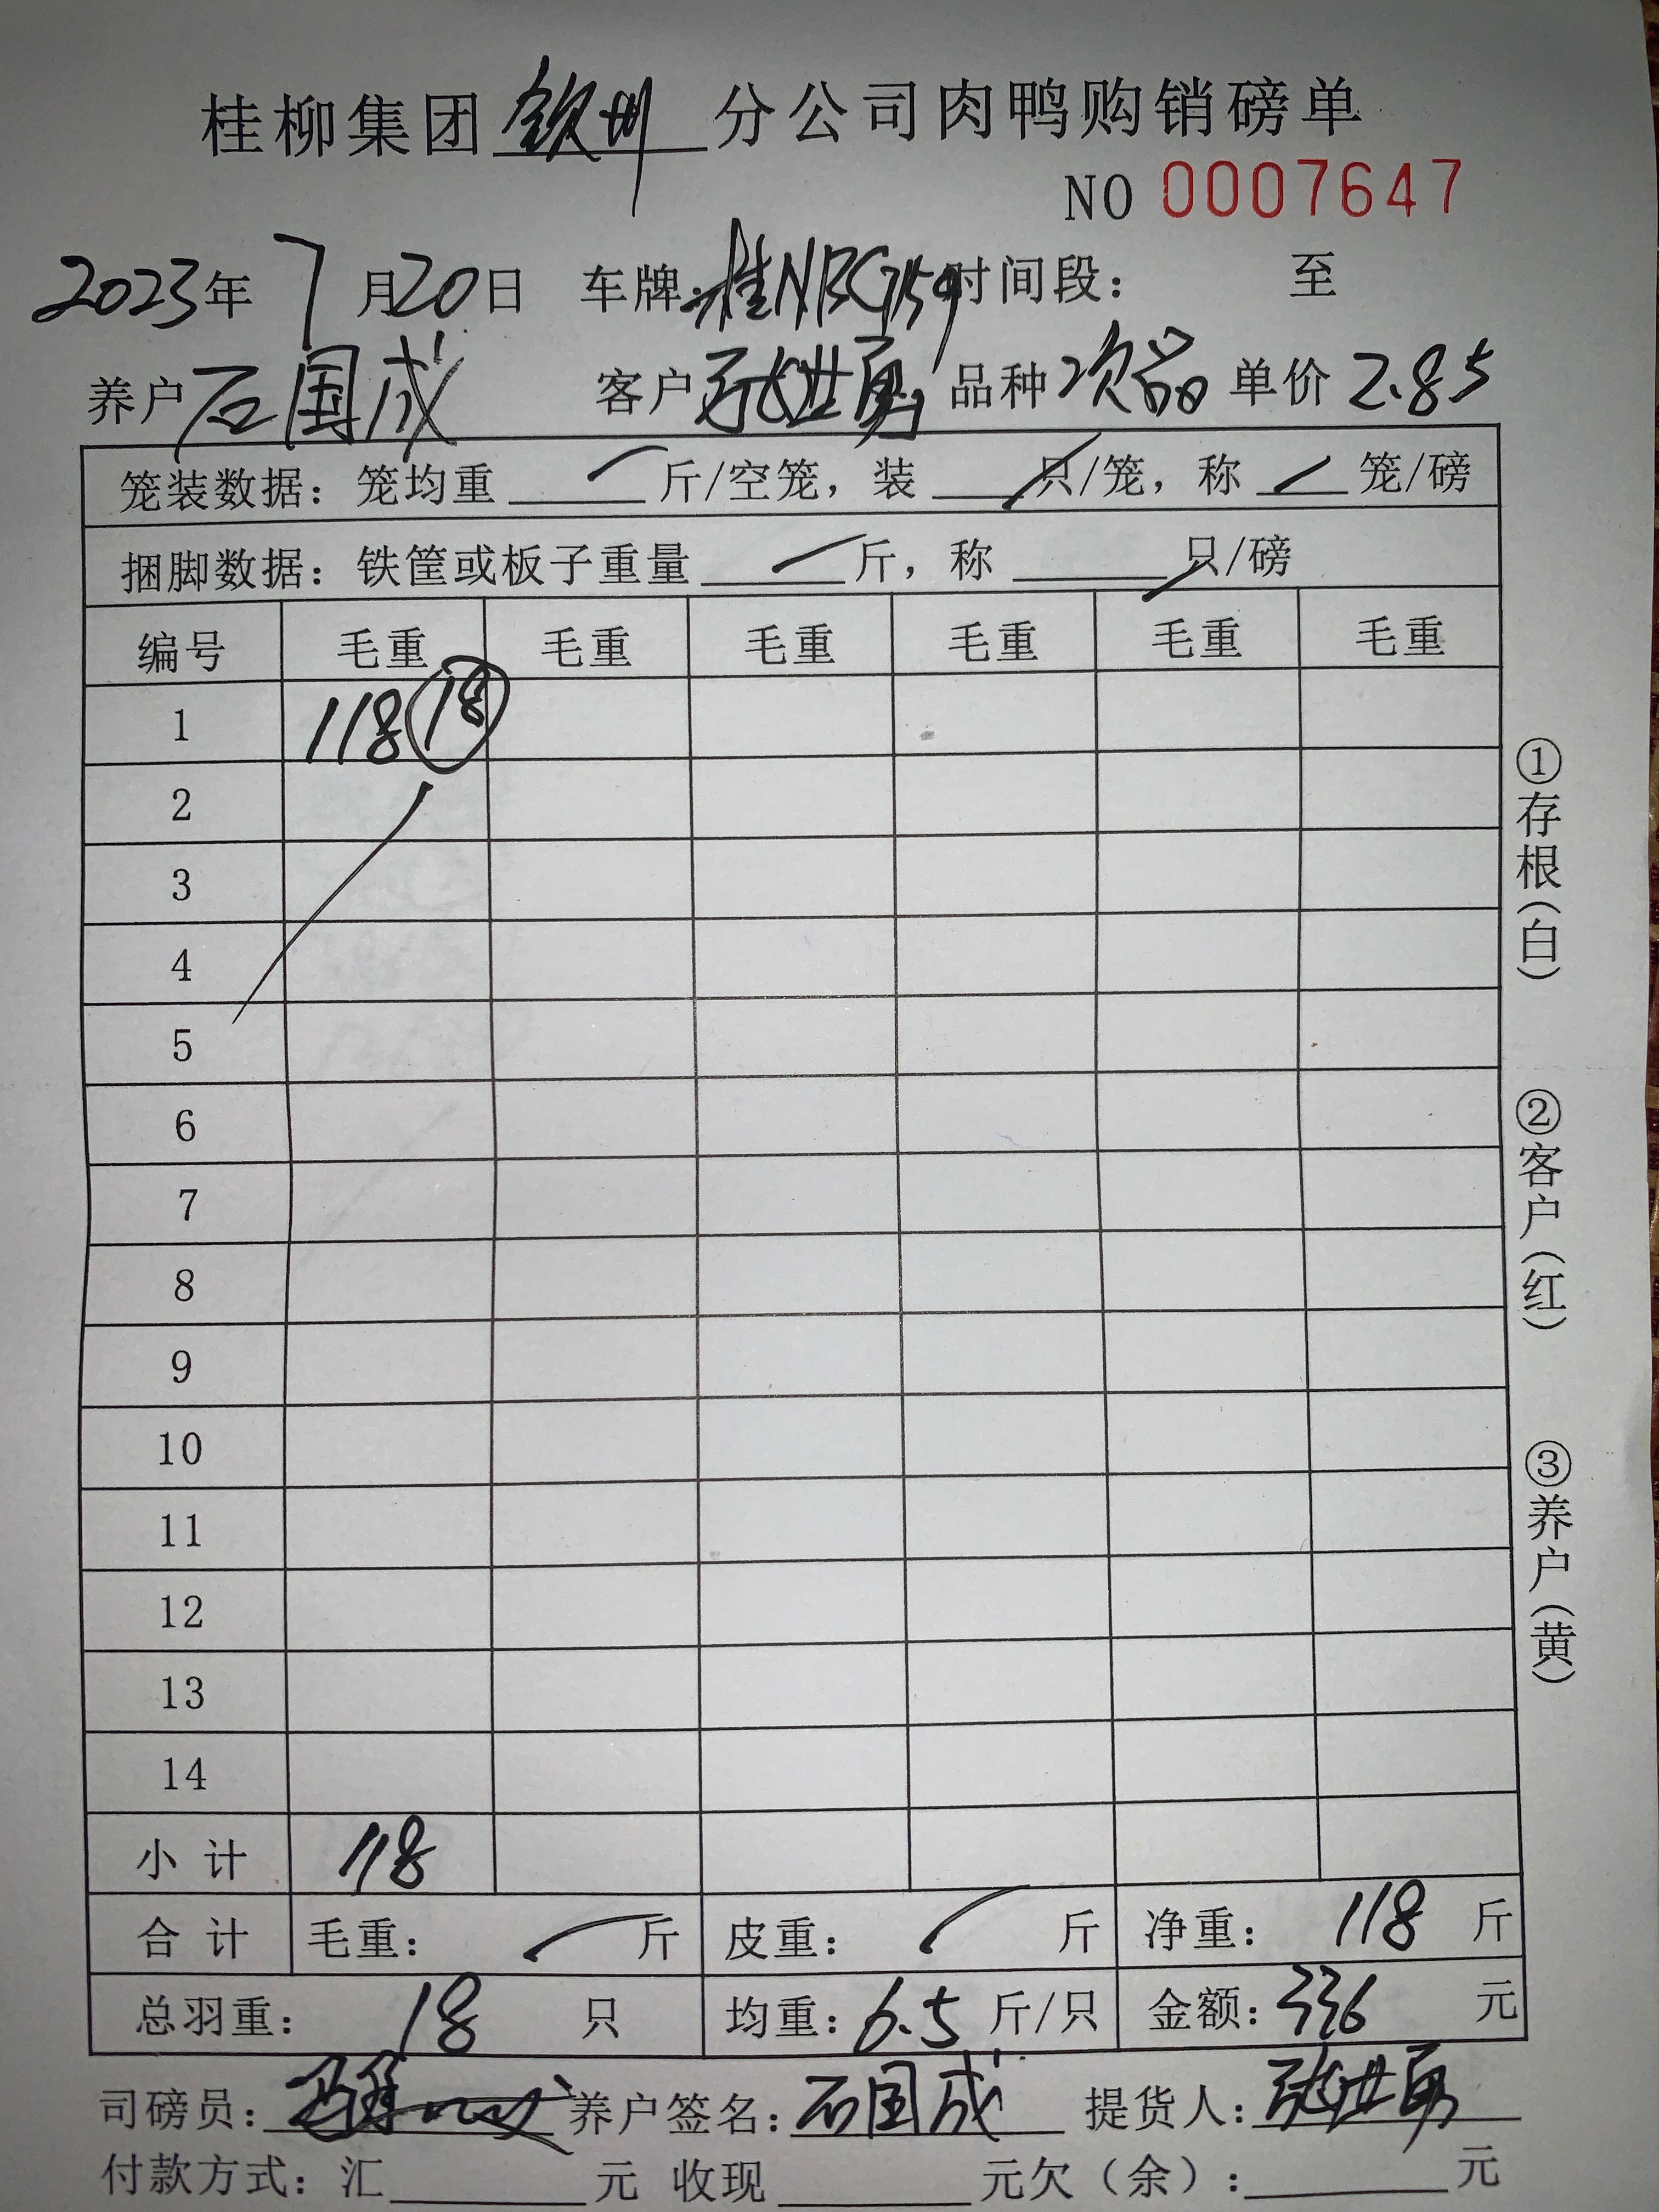 桂柳集团钦州分公司肉鸭购销磅单
NO 0007647
2023年7月20日 车牌:桂NBC759 时间段: 至
养户 石国成 客户 张世勇 品种 次品 单价 2.85
笼装数据: 笼均重 斤/空笼, 装 只/笼, 称 笼/磅
捆脚数据: 铁筐或板子重量 斤, 称 只/磅
编号 毛重 毛重 毛重 毛重 毛重 毛重
1 118 18
2
3
4
5
6
7
8
9
10
11
12
13
14
小计 118
合计 毛重: 斤 皮重: 斤 净重: 118 斤
总羽重: 18 只 均重: 6.5 斤/只 金额: 336 元
司磅员: 养户签名: 石国成 提货人: 张世勇
付款方式: 汇 元 收现 元欠(余): 元
①存根(白)
②客户(红)
③养户(黄)